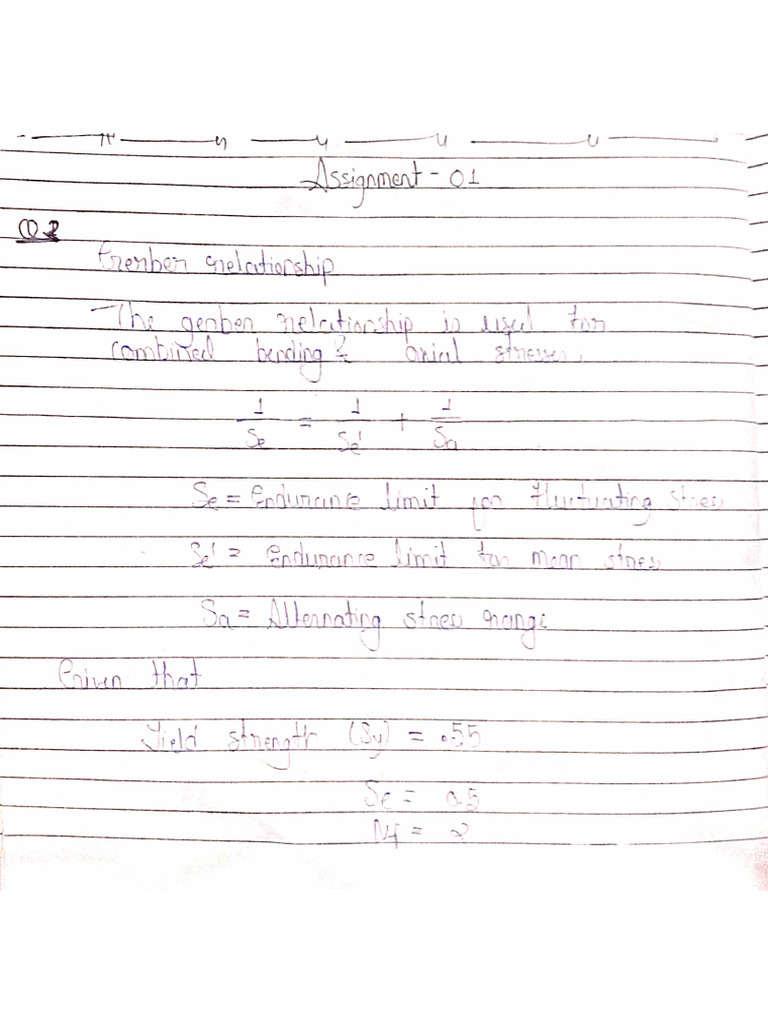 Assignment - 01
Q2
Gerber relationship
The gerber relationship is used for
combined bending & axial stresses.
1/Se = 1/Se' + 1/Sa
Se = Endurance limit for fluctuating stress
Se' = Endurance limit for mean stress
Sa = Alternating stress range
Given that
Yield strength (Sy) = .55
Se = 0.5
Nf = 2